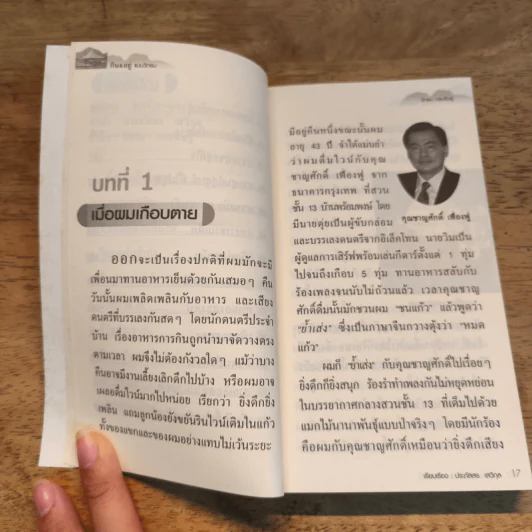 กินและอยู่ แบบวิกรม
บทที่ 1
เมื่อผมเกือบตาย
ออกจะเป็นเรื่องปกติที่ผมมักจะมี
เพื่อนมาทานอาหารเย็นด้วยกันเสมอๆ คืน
วันนั้นผมเพลิดเพลินกับอาหาร และเสียง
ดนตรีที่บรรเลงกันสดๆ โดยนักดนตรีประจำ
บ้าน เรื่องอาหารการกินถูกนำมาจัดวางตรง
ตามเวลา ผมจึงไม่ต้องกังวลใดๆ แม้ว่าบาง
คืนอาจมีงานเลี้ยงเลิกดึกไปบ้าง หรือผมอาจ
เผลอดื่มไวน์มากไปหน่อย เรียกว่า ยิ่งดึกยิ่ง
เพลิน แถมลูกน้องยังขยันรินไวน์เติมในแก้ว
ทั้งของแขกและของผมอย่างแทบไม่เว้นระยะ
มีอยู่คืนหนึ่งขณะนั้นผม
อายุ 43 ปี จำได้แม่นยำ
ว่าผมดื่มไวน์กับคุณ
ชาญศักดิ์ เฟื่องฟู จาก
ธนาคารกรุงเทพ ที่สวน
ชั้น 13 บ้านพร้อมพงษ์ โดย
คุณชาญศักดิ์ เฟื่องฟู
มีนายตุ่ยเป็นผู้ขับกล่อม
และบรรเลงดนตรีจากอิเล็กโทน นายวิมเป็น
ผู้ดูแลการเสิร์ฟพร้อมเล่นกีตาร์ตั้งแต่ 1 ทุ่ม
ไปจนถึงเกือบ 5 ทุ่ม ทานอาหารสลับกับ
ร้องเพลงจนนับไม่ถ้วนแล้ว เวลาคุณชาญ
ศักดิ์ดื่มนั้นมักชวนผม "ชนแก้ว" แล้วพูดว่า
"ย้ำเส่ง" ซึ่งเป็นภาษาจีนกวางตุ้งว่า "หมด
แก้ว"
ผมก็ "ย้ำเส่ง" กับคุณชาญศักดิ์ไปเรื่อยๆ
ยิ่งดึกก็ยิ่งสนุก ร้องรำทำเพลงกันไม่หยุดหย่อน
ในบรรยากาศกลางสวนชั้น 13 ที่เต็มไปด้วย
แมกไม้นานาพันธุ์แบบป่าจริงๆ โดยมีนักร้อง
คือผมกับคุณชาญศักดิ์เหมือนว่ายิ่งดึกเสียง
เรียบเรียง : ประภัสสร เสวิกุล 17